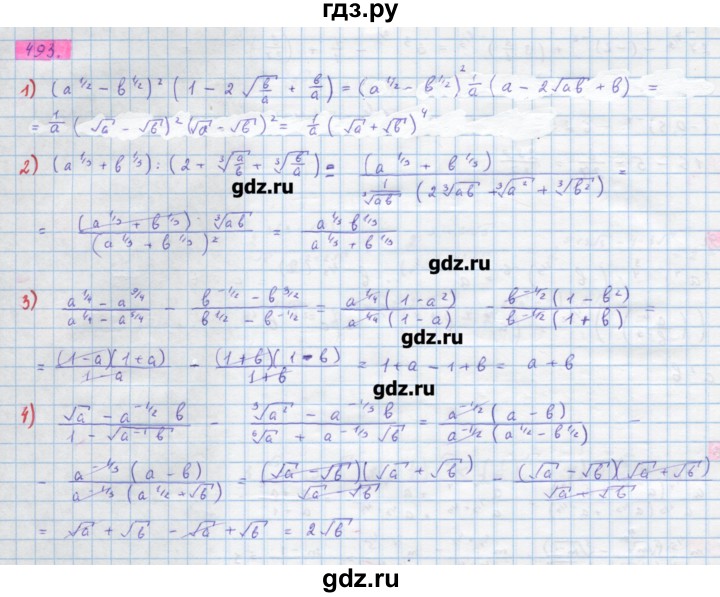 гдз.ру
493.
1) (a^{1/2} - b^{1/2})^2 (1 - 2√(b/a) + b/a) = (a^{1/2} - b^{1/2})^2 1/a (a - 2√ab + b) =
= 1/a (√a - √b)^2 (√a - √b)^2 = 1/a (√a + √b)^4
2) (a^{1/3} + b^{1/3}) : (2 + ∛(a/b) + ∛(b/a)) = (a^{1/3} + b^{1/3}) / (1/∛ab (2∛ab + ∛a^2 + ∛b^2)) =
gdz.ru
= (a^{1/3} + b^{1/3}) ∛ab / (a^{1/3} + b^{1/3})^2 = a^{1/3} b^{1/3} / (a^{1/3} + b^{1/3})
gdz.ru
3) (a^{1/4} - a^{9/4}) / (a^{1/4} - a^{5/4}) - (b^{-1/2} - b^{3/2}) / (b^{1/2} - b^{-1/2}) = a^{1/4}(1 - a^2) / a^{1/4}(1 - a) - b^{-1/2}(1 - b^2) / b^{-1/2}(1 + b) =
= (1 - a)(1 + a) / (1 - a) - (1 + b)(1 - b) / (1 + b) = 1 + a - 1 + b = a + b
gdz.ru
4) (√a - a^{-1/2} b) / (1 - √(a^{-1} b)) - (∛a^2 - a^{-1/3} b) / (⁶√a + a^{-1/3} √b) = a^{-1/2}(a - b) / a^{-1/2}(a^{1/2} - b^{1/2}) -
- a^{-1/3}(a - b) / a^{-1/3}(a^{1/2} + √b) = (√a - √b)(√a + √b) / (√a - √b) - (√a - √b)(√a + √b) / (√a + √b)
gdz.ru
= √a + √b - √a + √b = 2√b
gdz.ru